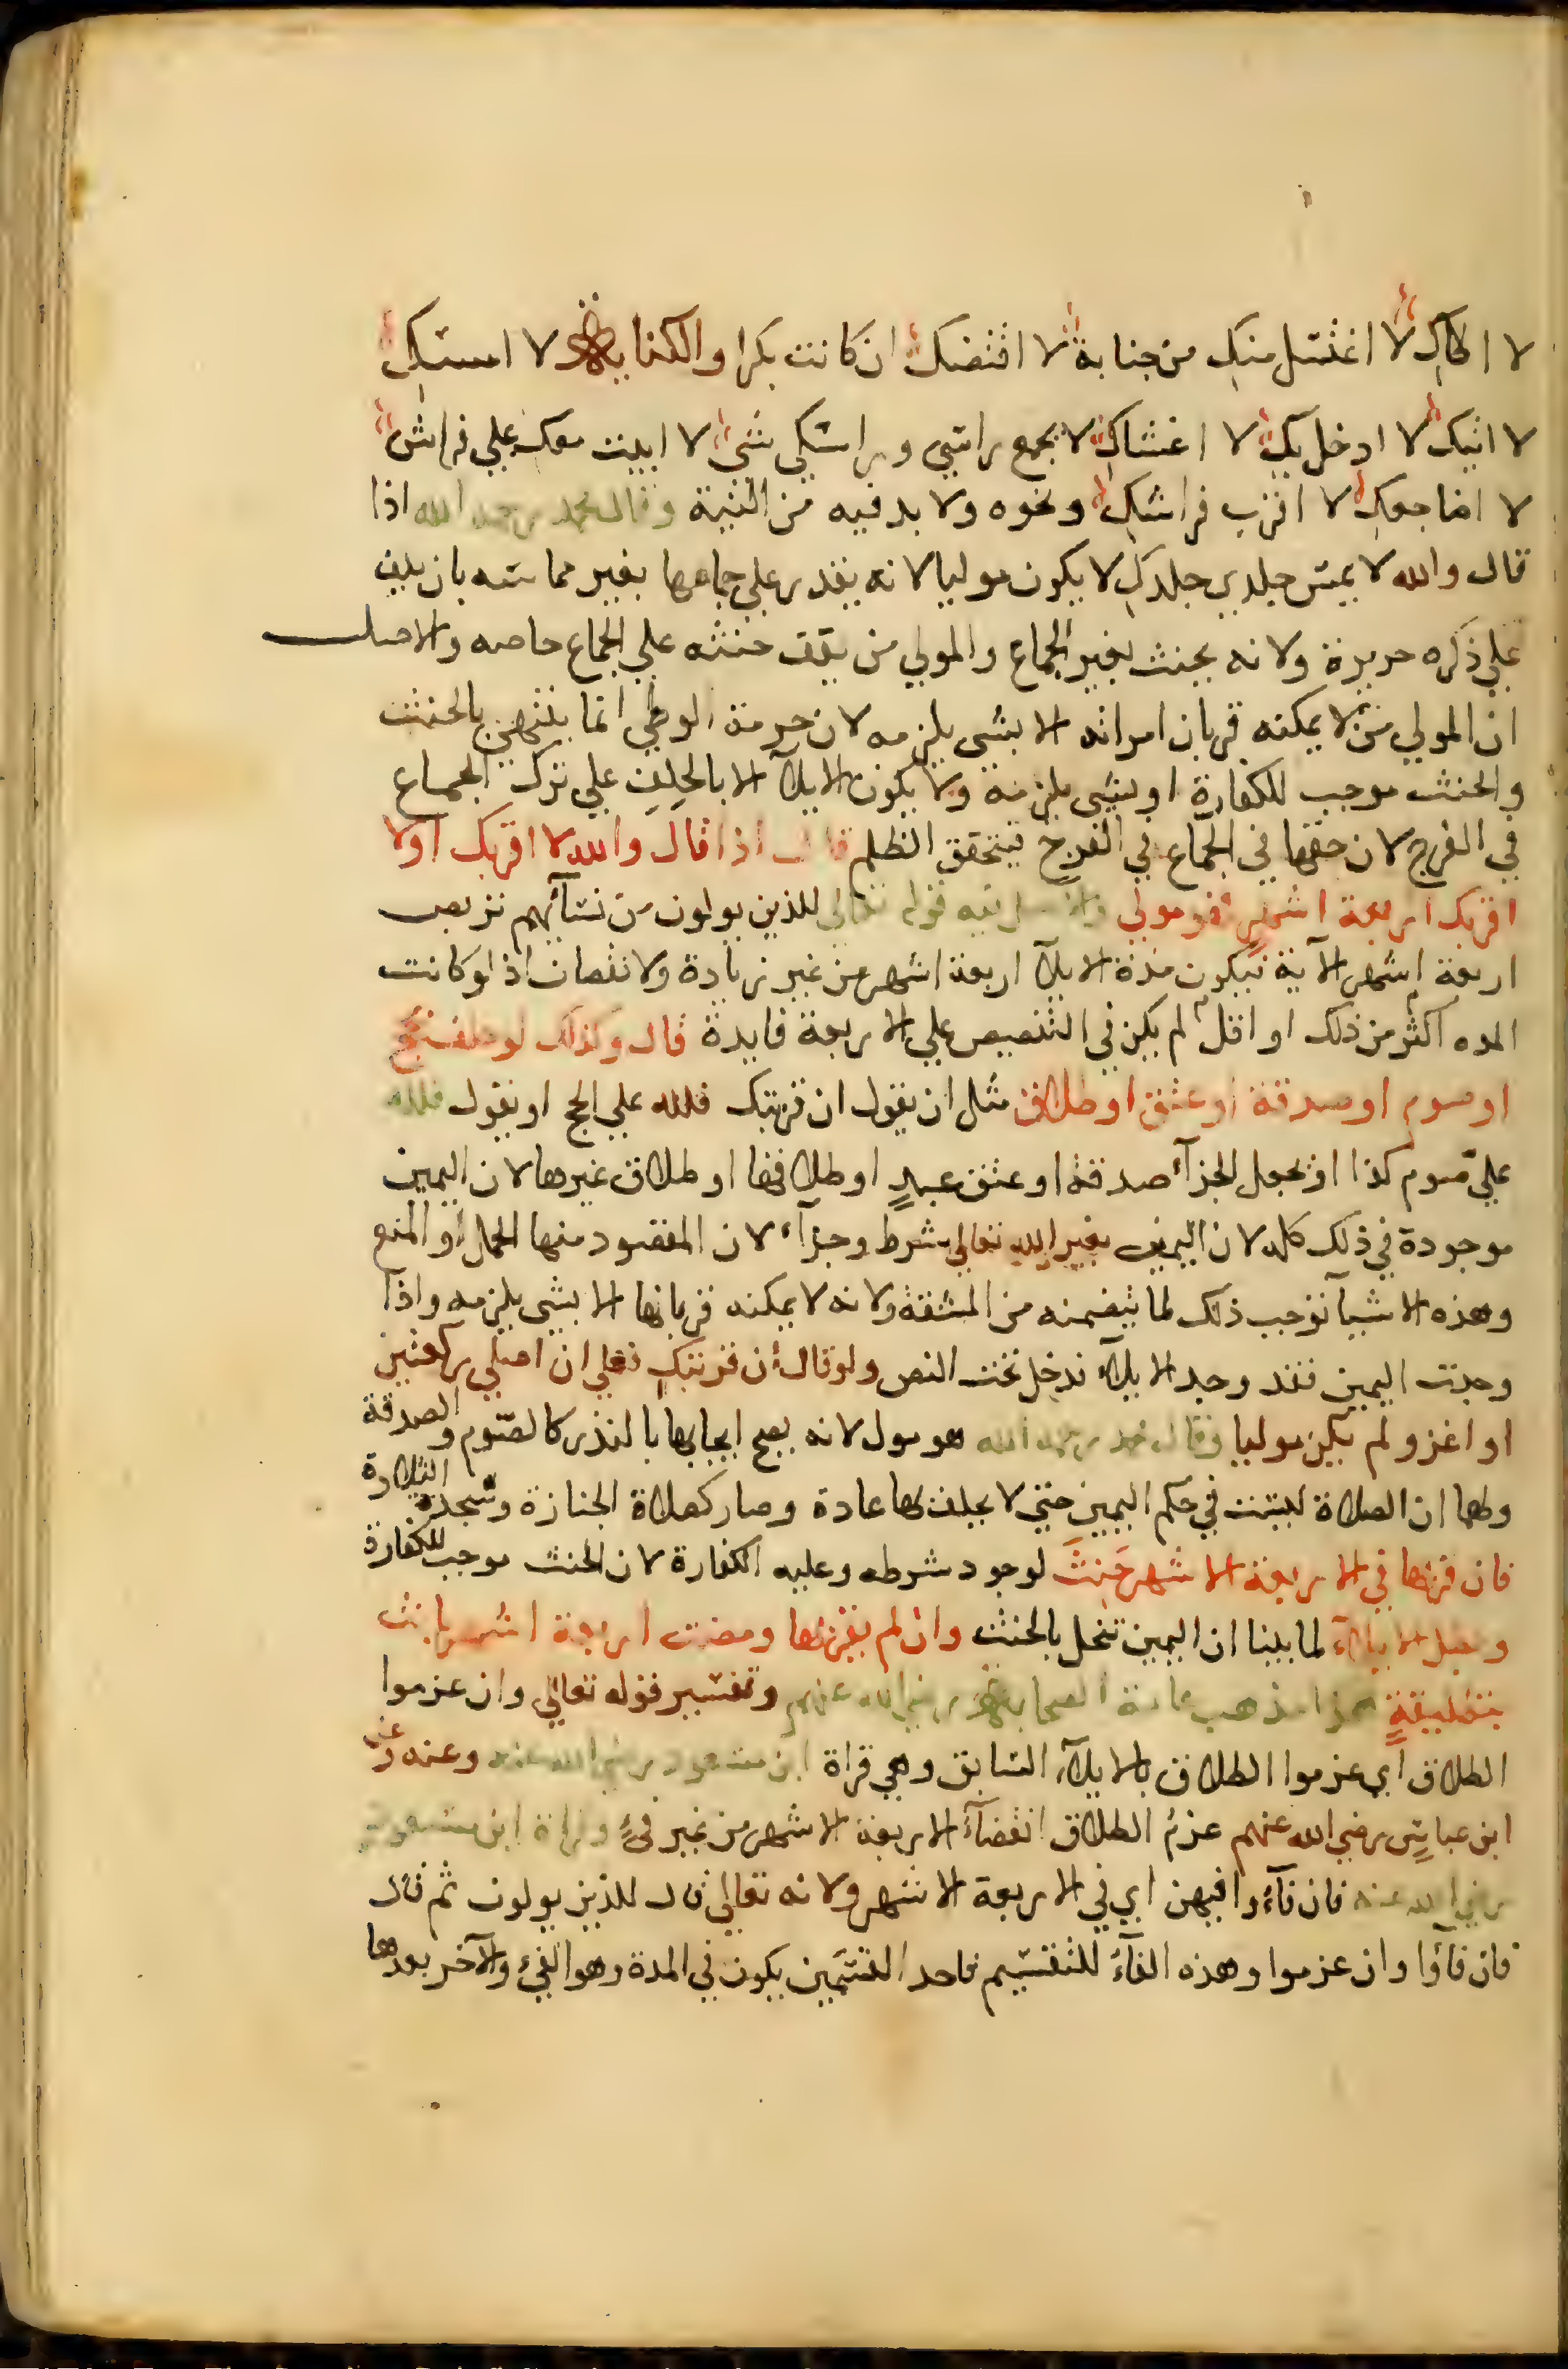 لا اطاك لا اغتسل منك من جنابة لا افتضك ان كانت بكرا والكناية لا امسك
لا اتيك لا ادخل بك لا اغشاك لا يجمع راسي وراسك شي لا ابيت معك علي فراش
لا اضاجعك لا اقرب فراشك ونحوه ولا بد فيه من النية وقال محمد رحمه الله اذا
قال والله لا يمس جلدي جلدك لا يكون موليا لانه يقدر علي جماعها بغير مماسه بان يلف
علي ذكره حريرة ولانه يحنث بغير الجماع والمولي من يقف حنثه علي الجماع خاصه والاصل
ان المولي من لا يمكنه قربان امراته الا بشي يلزمه لان حرمة الوطي انما ينتهي بالحنث
والحنث موجب للكفارة او بشي يلزمه ولا يكون الايلآ الا بالحلف علي ترك الجماع
في الفرج لان حقها في الجماع في الفرج فيتحقق الظلم قال اذا قال والله لا اقربك او لا
اقربك اربعة اشهر فهو مولي والاصل فيه قوله تعالي للذين يولون من نسآئهم تربص
اربعة اشهر الاية فيكون مدة الايلآ اربعة اشهر من غير زيادة ولا نقصان اذ لو كانت
المده اكثر من ذلك او اقل لم يكن في التنصيص علي الاربعة فايدة قال وكذلك لو حلف بحج
او صوم او صدقة او عتق او طلاق مثل ان يقول ان قربتك فلله علي الحج او يقول فلله
علي صوم كذا او يجعل الجزآء صدقة او عتق عبدٍ او طلاقها او طلاق غيرها لان اليمين
موجودة في ذلك كله لان اليمين بغير الله تعالي شرط وجزآء لان المقصود منها الحمل او المنع
وهذه الاشيآ توجب ذلك لما يتضمنه من المشقة ولانه لا يمكنه قربانها الا بشي يلزمه واذا
وجدت اليمين فقد وجد الايلآء فدخل تحت النص ولو قال ان قربتك فعلي ان اصلي ركعتين
او اغزو لم يكن موليا وقال محمد رحمه الله هو مول لانه يصح ايجابها بالنذر كالصوم والصدقة
ولهما ان الصلاة ليست في حكم اليمين حتي لا يحلف بها عادة وصار كصلاة الجنازة وسجدة التلاوة
فان قربها في الاربعة الاشهر حَنِثَ لوجود شرطه وعليه الكفارة لان الحنث موجب للكفارة
وبطل الايلآء لما بينا ان اليمين تنحل بالحنث وان لم يقربها ومضت اربعة اشهر بانت
بتطليقةٍ هذا مذهب عامة الصحابة رضي الله عنهم وتفسير قوله تعالي وان عزموا
الطلاق اي عزموا الطلاق بالايلآء السابق وهي قراة ابن مسعود رضي الله عنه وعنه وعن
ابن عباس رضي الله عنهم عزمُ الطلاق انقضآءُ الاربعة الاشهر من غير فئٍ وقراة ابن مسعود
رضي الله عنه فان فآءُوا فيهن اي في الاربعة الاشهر ولانه تعالي قال للذين يولون ثم قال
فان فآؤا وان عزموا وهذه الفآءُ للتقسيم فاحد القسمين يكون في المدة وهو الفئ والآخر بعدها